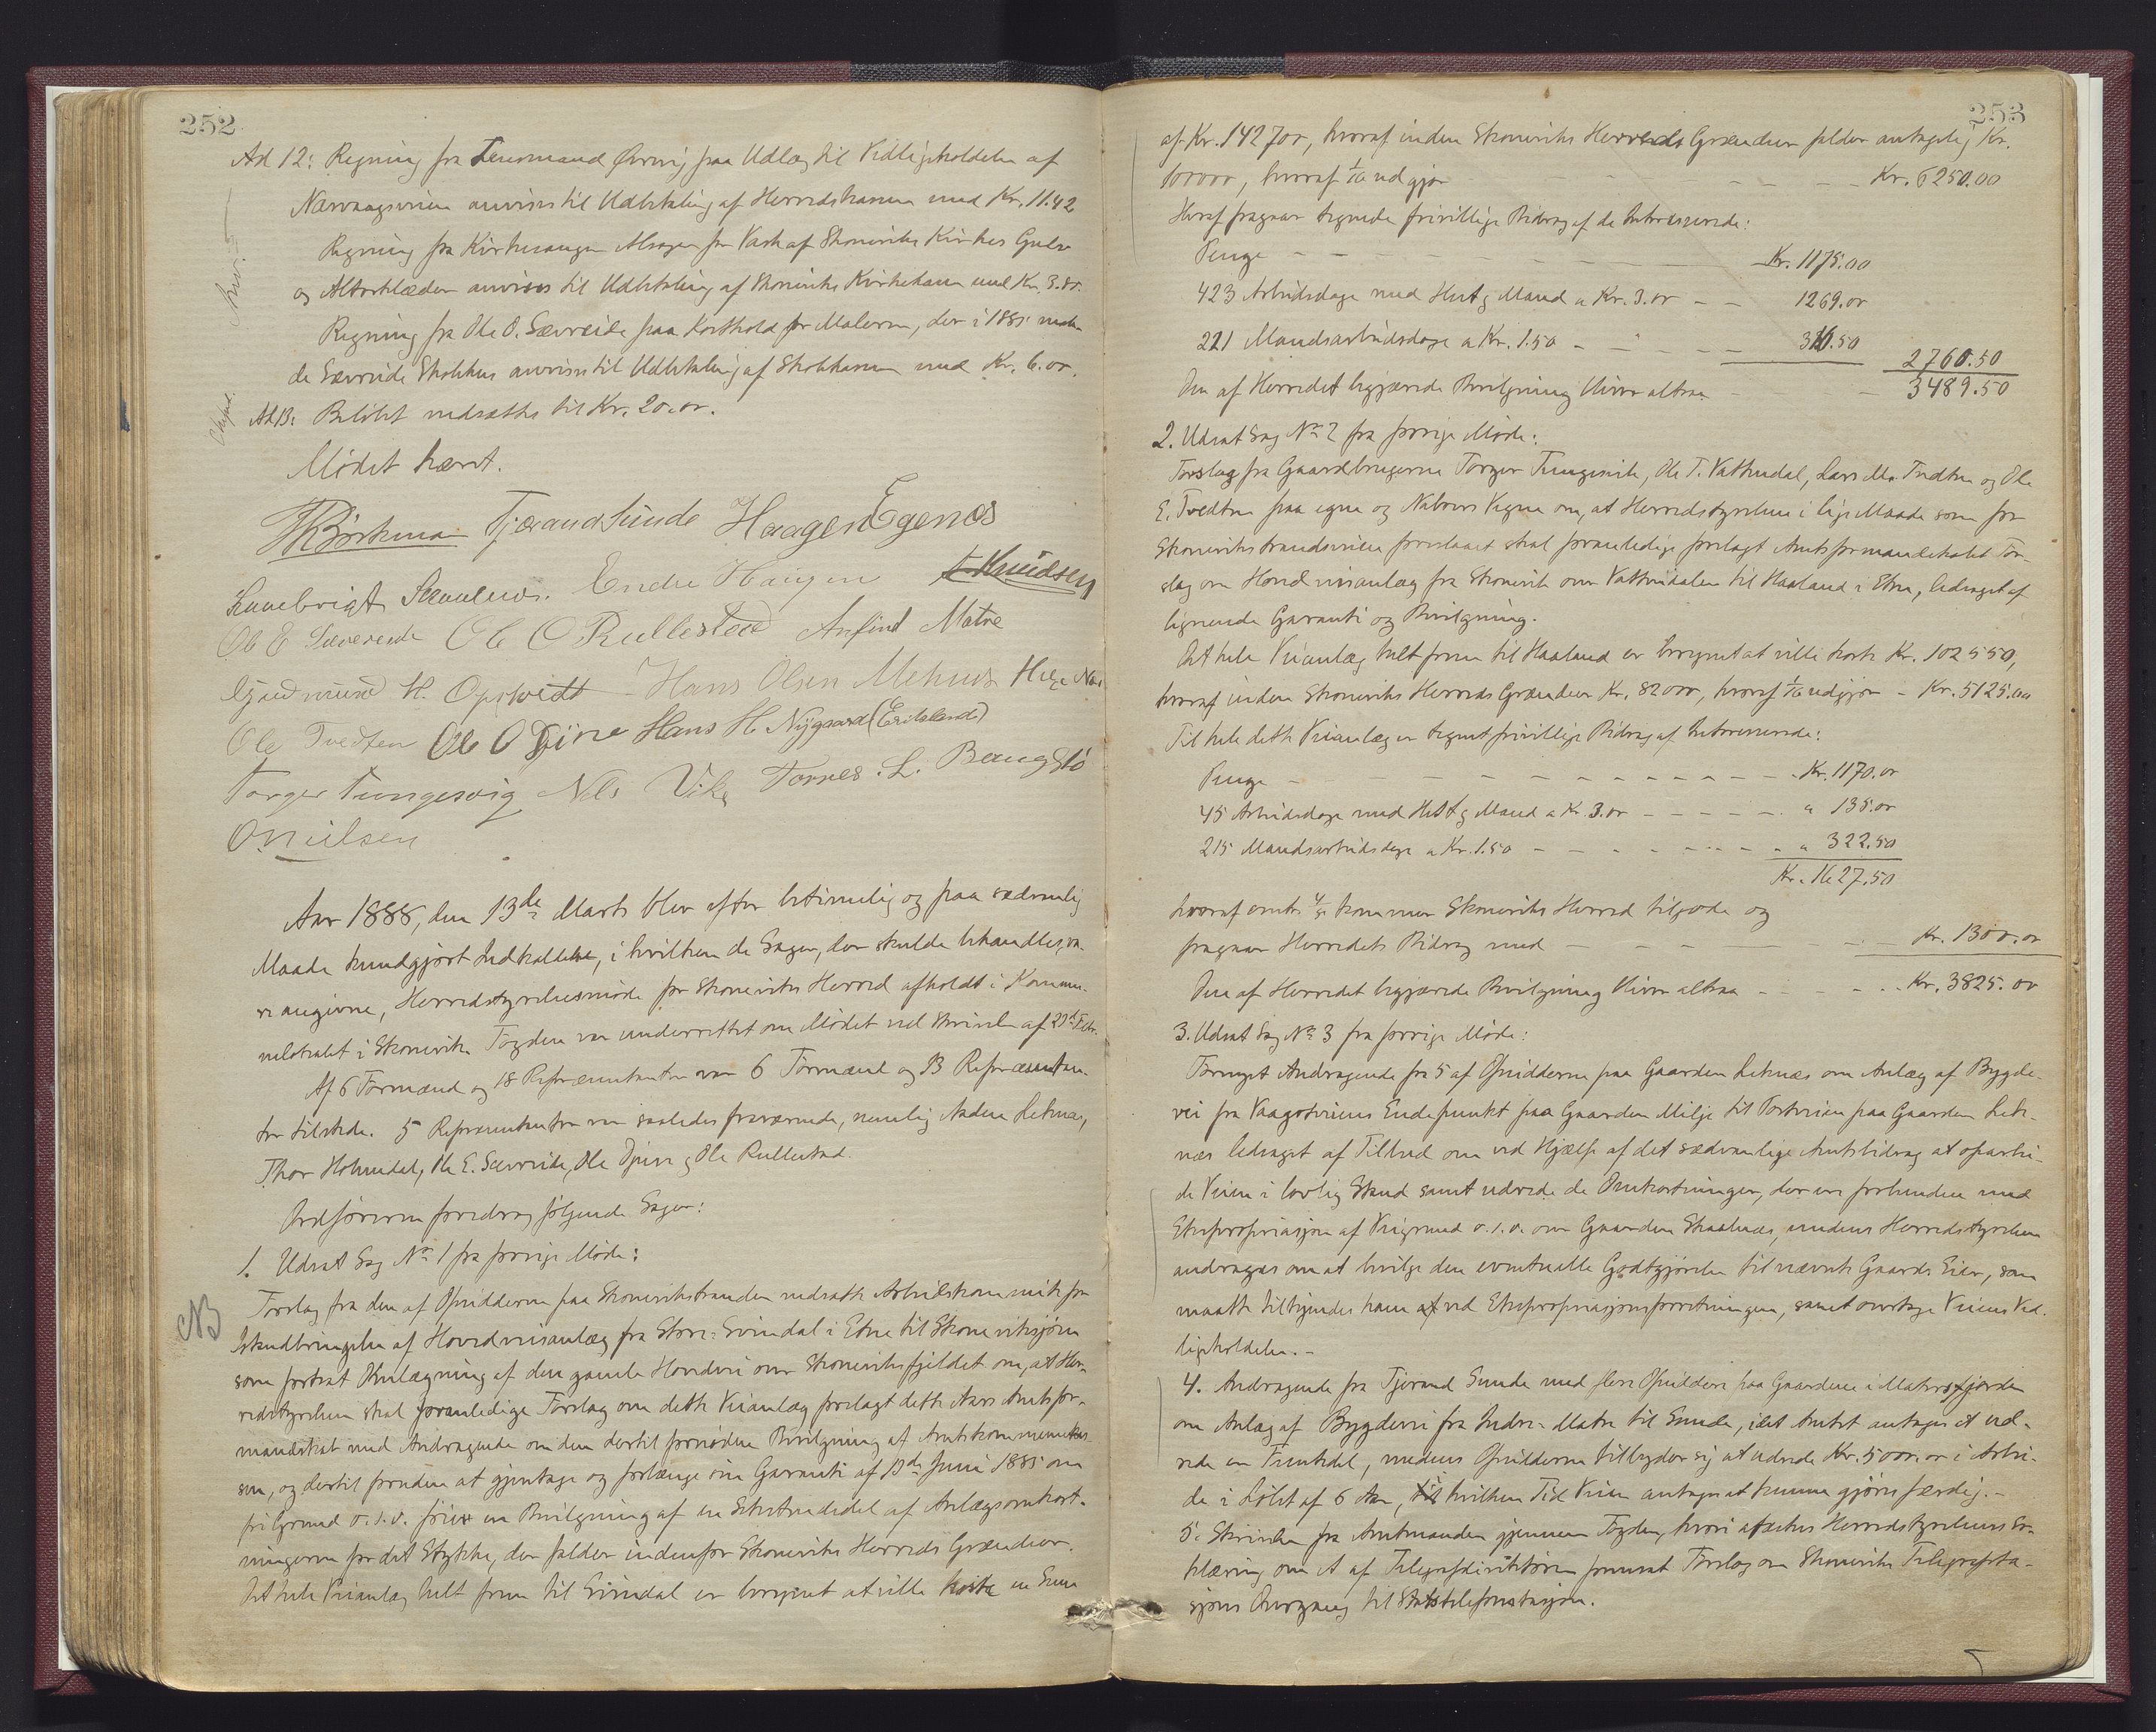 252
Ad 12: Regning fra Lensmand Ørvig paa Udlæg til Vedligeholdelse af
Nærvaagsveien anvises til Udbetaling af Herredskassen med Kr. 11.42
Regning fra Kirkesanger Alsager for Vask af Skoneviks Kirkes Gulv
og Alterklæder anvises til Udbetaling af Skoneviks Kirkekasse med Kr. 3.80.
Regning fra Ole O. Sævreide paa Kosthold for Maleren, der i 1885 male-
de Sævreide Skolehus anvises til Udbetaling af Skolekassen med Kr. 6.00.
Ad 13: Beløbet nedsættes til Kr. 20.00.
Mødet hævet.
Tjerand Sunde Haagen Egenes
Endre Haugen T. Knudsen
Ole E Sævereide Ole O Rullestad Anfind Matre
Gudmund H. Opsvidt Hans Olsen Mehus Helge Næs
Ole Tvedten Ole O Djúve Hans H. Nygaard (Eritsland)
Torger Tungesvig Nils Vike Tørres. L. Baugstø
O. Nielsen
Aar 1888, den 13de Marts blev efter betimelig og paa sædvanlig
Maade kundgjort Indkaldelse, i hvilken de Sager, der skulde behandles, va-
re angivne, Herredstyrelsesmøde for Skoneviks Herred afholdt i Kommu-
nelokalet i Skonevik. Fogden var underrettet om Mødet ved Skrivelse af 29de Febr.
Af 6 Formænd og 18 Repræsentanter var 6 Formænd og 13 Repræsentan-
ter tilstede. 5 Repræsentanter var saaledes fraværende, nemlig Anders Leknæs,
Thor Holmedal, Ole E. Sævreide, Ole Djuve og Ole Rullestad.
Ordføreren foredrog følgende Sager:
1. Udsat Sag No 1 fra forrige Møde:
NB
Forslag fra den af Opsidderne paa Skonevikstranden nedsatte Arbeidskommite for
Istandbringelse af Hovedveisanlæg fra Store-Svindal i Etne til Skoneviksjøen
som fortsat Omlægning af den gamle Hovedvei over Skoneviksfjeldet om, at Her-
redstyrelsen skal foranledige Forslag om dette Veianlæg forelagt dette Aars Amtsfor-
mandskab med Andragende om den dertil fornødne Bevilgning af Amtskommunekas-
sen, og dertil foruden at gjentage og forlænge sin Garanti af 13de Juni 1885 om
fri Grund o. s. v. give en Bevilgning af en Sekstendedel af Anlægsomkost-
ningerne for det Stykke, der falder indenfor Skoneviks Herreds Grændser.
Det hele Veianlæg helt frem til Svindal er beregnet at ville koste en Sum
253
af Kr. 142700, hvoraf inden Skoneviks Herreds Grændser falder antagelig Kr.
100000, hvoraf 1/16 udgjør - - - - Kr. 6250.00
Heraf fragaar tegnede frivillige Bidrag af de Interesserede:
Penge - - - - Kr. 1175.00
423 Arbeidsdage med Hest og Mand a Kr. 3.00 - - 1269.00
211 Mandsarbeidsdage a Kr. 1.50 - " - - 316.50
2760.50
Den af Herredet begjærede Bevilgning bliver altsaa - - - 3489.50
2. Udsat Sag No 2 fra forrige Møde:
Forslag fra Gaardbrugerne Torger Tungesvik, Ole T. Vattendal, Lars M. Tvedten og Ole
E. Tvedten paa egne og Naboers Vegne om, at Herredstyrelsen i lige Maade som for
Skonevikstrandsveien foreslaaet skal foranledige forelagt Amtsformandskabet For-
slag om Hovedveisanlæg fra Skonevik over Vattendalen til Haaland i Etne, ledsaget af
lignende Garanti og Bevilgning.
Det hele Veianlæg helt frem til Haaland er beregnet at ville koste Kr. 102550,
hvoraf inden Skoneviks Herreds Grændser Kr. 82000, hvoraf 1/16 udgjør - Kr. 5125.00
Til hele dette Veianlæg er tegnet frivillige Bidrag af Interesserede:
Penge - - - - Kr. 1170.00
45 Arbeidsdage med Hest og Mand a Kr. 3.00 - - - - " 135.00
215 Mandsarbeidsdage a Kr. 1.50 - - - - " 322.50
Kr. 1627.50
hvoraf omtr. 4/5 kommer Skoneviks Herred tilgode og
fragaar Herredets Bidrag med - - - - Kr. 1300.00
Den af Herredet begjærede Bevilgning bliver altsaa - - - Kr. 3825.00
3. Udsat Sag No 3 fra forrige Møde:
Fornyet Andragende fra 5 af Opsidderne paa Gaarden Leknæs om Anlæg af Bygde-
vei fra Vaagsveiens Endepunkt paa Gaarden Milje til Postveien paa Gaarden Lek-
næs ledsaget af Tilbud om ved Hjælp af det sædvanlige Amtsbidrag at oparbei-
de Veien i lovlig Stand samt udrede de Omkostninger, der ere forbundne med
Ekspropriasjon af Veigrund o. s. v. over Gaarden Skaalnæs, medens Herredstyrelsen
andrages om at bevilge den eventuelle Godtgjørelse til nævnte Gaards Eier, som
maatte tilkjendes ham ved Ekspropriasjonsforretningen, samt overtage Veiens Ved-
ligeholdelse. -
4. Andragende fra Tjerand Sunde med flere Opsiddere paa Gaardene i Matrefjorden
om Anlæg af Bygdevei fra Indre-Matre til Sunde, idet Amtet antages at ud-
rede en Femtedel, medens Opsidderne tilbyder sig at udrede Kr. 500.00 i Arbei-
de i Løbet af 6 Aar, hvilken Tid Veien antages at kunne gjøres færdig. -
5. Skrivelse fra Amtmanden gjennem Fogden, hvori afæskes Herredstyrelsens Er-
klæring om et af Telegrafdirektøren fremsat Forslag om Skoneviks Telegrafsta-
sjons Overgang til Statstelefonstasjon.